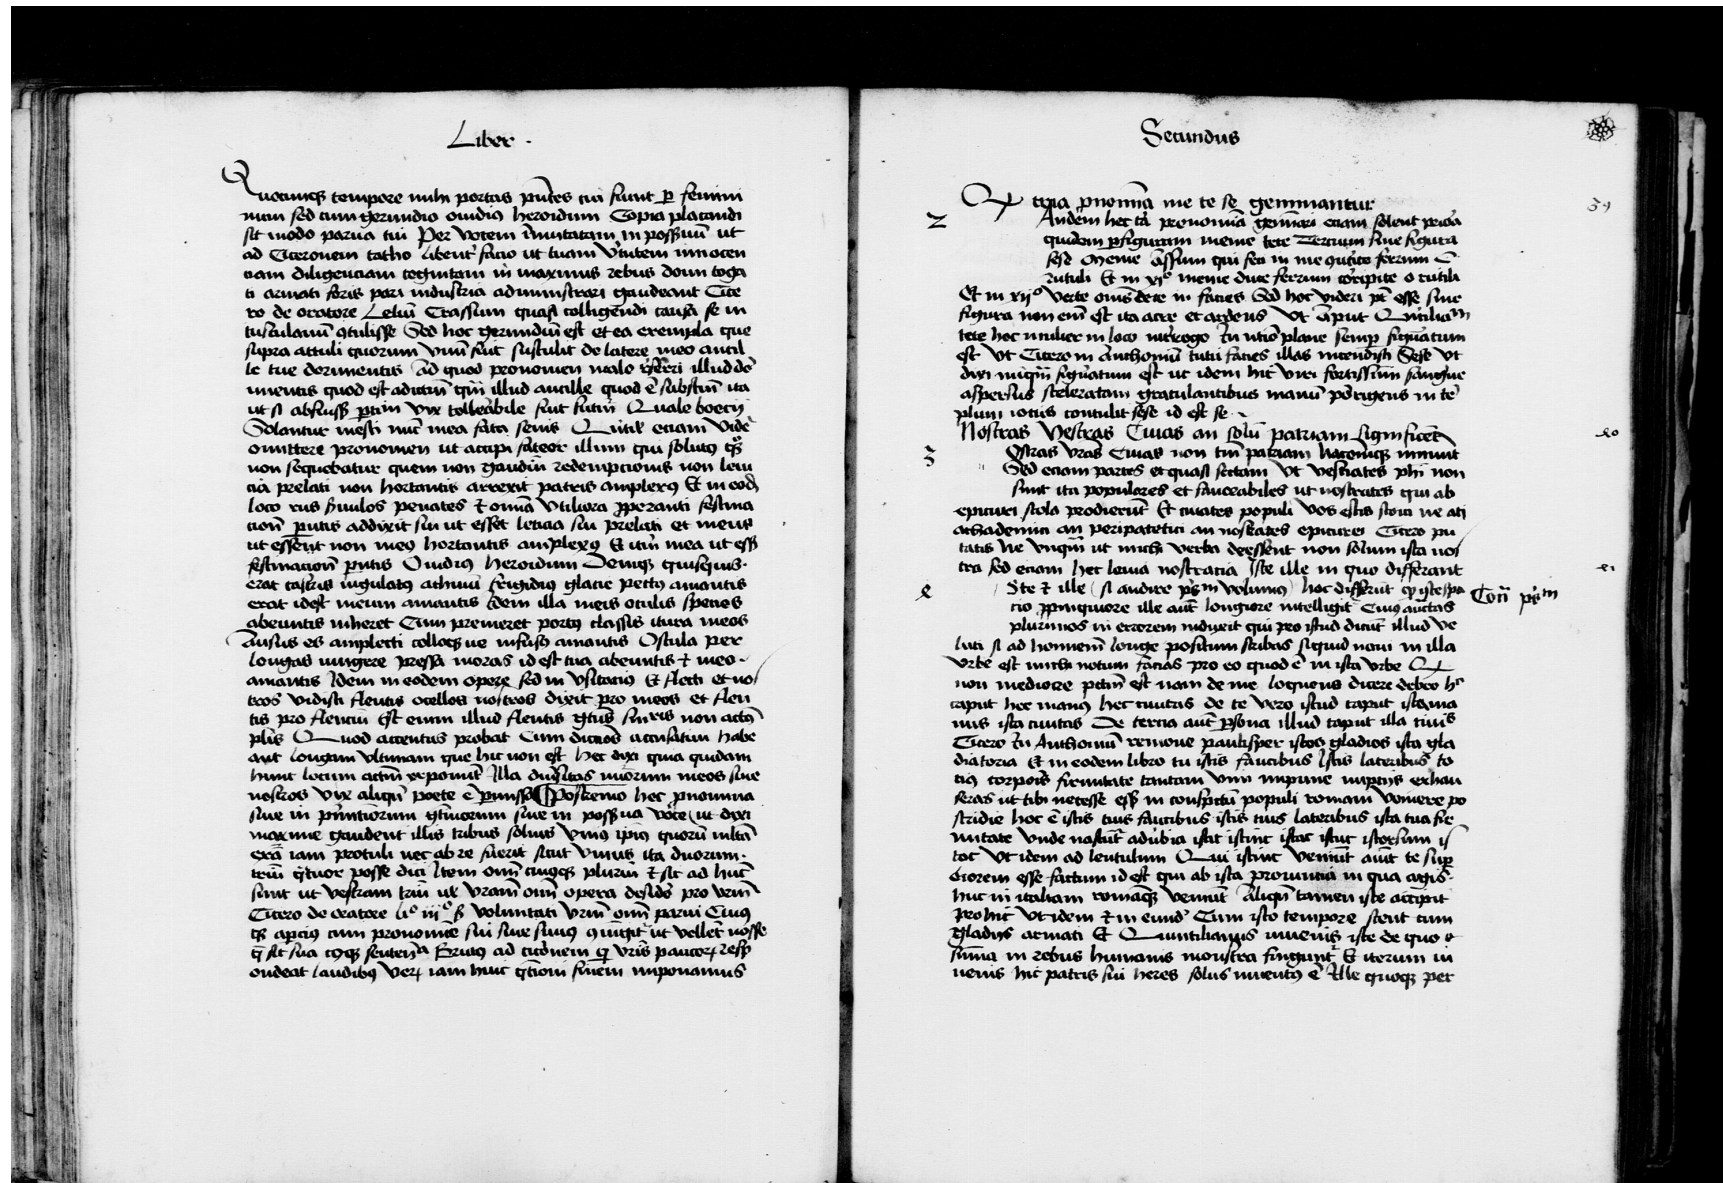 Liber .
Quocunqz tempore mihi portas pñtes tui fiunt ꝑ femini
num sed cum gerundio ouidius heroidum Copia placandi
sit modo parua tui Per vocem īmutatam in possiuū ut
ad Ciceronem catho libent' facio ut tuam v'tutem innocen
ciam diligenciam cognitam in maximis rebus domi toga
ti armati foris pari industria administrari gaudeant Cice
ro de oratore Leliū Crassum quasi colligendi causa se in
tusculanū ꝯtulisse Sed hoc gerundiū est et ea exempla que
supra attuli quorum vnū fuit sustulit de latere meo ancil
le tue dormientis ad quod pronomen malo referri illud do
mientis quod est adiectiū qm̄ illud ancille quod ē substm̄ ita
ut si abfuiss; ꝑtim vix tollerabile fuit futurū Quale boecij
Solantur mesti nunc mea fata senis Quītilis etiam vide
omittere pronomen ut accipi fateor illum qui solutus
non sequebatur quem non gaudiū redempcionis non leui
cia prelati non hortantis arrexit patris amplexus Et in eod
loco rus seruulos penates & omīa vtiliora ꝓperanti festina
cioni patris addixit sui ut esset leticia sui prelati et meus
ut essent non meus hortantis amplexus Et iterū mea ut ess;
festinacioni ꝑntis Ouidius heroidum Deniqz quisquis
erat castris iugulatus achiuis frigidius glacie pectus amantis
erat idest meum amantis Idem illa meis oculis species
abeuntis inheret Cum premeret portus classis itura meos
Ausus es amplecti colloqz ue infusus amantis Oscula per
longas iungere pressa moras id est tua abeuntis & meo
amantis Idem in eodem opere sed in vsitacius Et flesti et no
tros vidisti flentis ocellos nostros dixit pro meos et flen
tis pro flenciū Est enim illud flentis gtus singularis non actus
plis Quod accentus probat Cum dictiōis accusatiui habe
ant longam vltimam que hic non est Hec dixi quia quidam
hunc locum actm̄ reponunt Illa diuersitas numorum meos siue
nostros vix aliqn̄ poete ē ꝑmissa ¶ Postremo hec ꝓnomina
siue in primitiuorum gtiuorum siue in possiua voce ut dixi
maxime gaudent illis tribus solius vnius ipius quorū multa
exa iam protuli nec ab re fuerit sicut vnius ita duorum
trium quatuor posse dici Item om̄ cuiusqz plurium & sic ad hunc
sunt ut vestram trium ux vrām om̄ opera desidero pro vrm̄
Cicero de oratore li° iij° s; voluntati vrm̄ om̄ parui Cuius
qz apcius cum pronomine sui siue suus ꝯiūgit' ut vellet nosse
q̄ sit sua cuiusqz sentencia Brutus ad ciceronem qꝫ vr̄is paucorum resp
ondeat laudibus verum iam huic q̄stioni finem imponamus
Secundus
Qꝫ tria pronomīa me te se gemmantur
59
2 Andem hec tria pronomīa geminari etiam solent preterea
quedam ꝑ figuram meme tete Tercium siue figura
sese Meme Assum qui feci in me conuertite ferrum O
rutuli Et in xi° meme duce ferrum corripite o rutuli
Et in xij° Verte omnis tete in facies Sed hoc videri potest esse siue
figura non enim est ita acre et ardens Vt apud Quītilianum
tete hoc mulier in loco interrogo tu uero plane semper figuratum
est Vt Cicero in Anthoniū tuti facies illas intendisti Sese Vt
dixi nūquā figuratum est ut idem hic viri fortissimi sangue
aspersus sceleratam gratulantibus manū porrigens in te
plum iouis contulit sese id est se
Nostras Vestras Cuias an solū patriam significent
60
3 Ostras vr̄as Cuias non tm̄ patriam nacionēqz innuūt
Sed etiam partes et quasi sectam Vt vestrates phi non
sunt ita populares et fauorabiles ut nostrates qui ab
epicuri scola prodierūt Et cuiates populi vos estis stoici ne an
achademici an peripatetici an nostrates epicurei Cicero pu
tatis ne vnqm̄ ut michi verba deessent non solum ista nos
tra sed etiam hec leuia nostracia Iste ille in quo differant
61
e Ste & ille (si audire ps̄m volumus) hoc differūt qꝫ iste spa
Cont̄ ps̄m
cio ꝓpinquiore ille aūt longiore intelligit' Cuius auctas
plurimos in errorem induxit qui pro istud dicūt illud ve
luti si ad hominem longe positum scribas siquid noui in illa
vrbe est michi notum facias pro eo quod ē in ista vrbe Qꝫ
non mediocre peccm̄ est nam de me loquens dicere debeo hoc
caput hec manus hec ciuitas de te vero istud caput ista ma
nus ista ciuitas De tercia aūt persona illud caput illa ciuis
Cicero in Anthoniū remoue paulisper istos gladios ista gla
diatoria Et in eodem libro tu istis faucibus istis lateribus to
cius corporis firmitate tantam vini in nupciis exhau
seras ut tibi necesse ess; in conspectu populi romani vomere po
stridie hoc ē istis tuis faucibus istis tuis lateribus ista tua fir
mitate vnde nascunt' aduerbia istic istinc istac istuc istorsum is
toc Vt idem ad lentulum Qui istinc veniūt aiūt te suꝑ
biorem esse factum id est qui ab ista prouincia in qua agis
huc in italiam romāqz veniūt Aliqn̄ tamen iste accipit'
pro hic Vt idem & in eund' Cum isto tempore stent cum
gladijs armati Et Quintilianus iuuenis iste de quo
summa in rebus humanis monstra fingunt' Et iterum iu
uenis hic patris sui heres solus inuentus ē Ille quoqz per